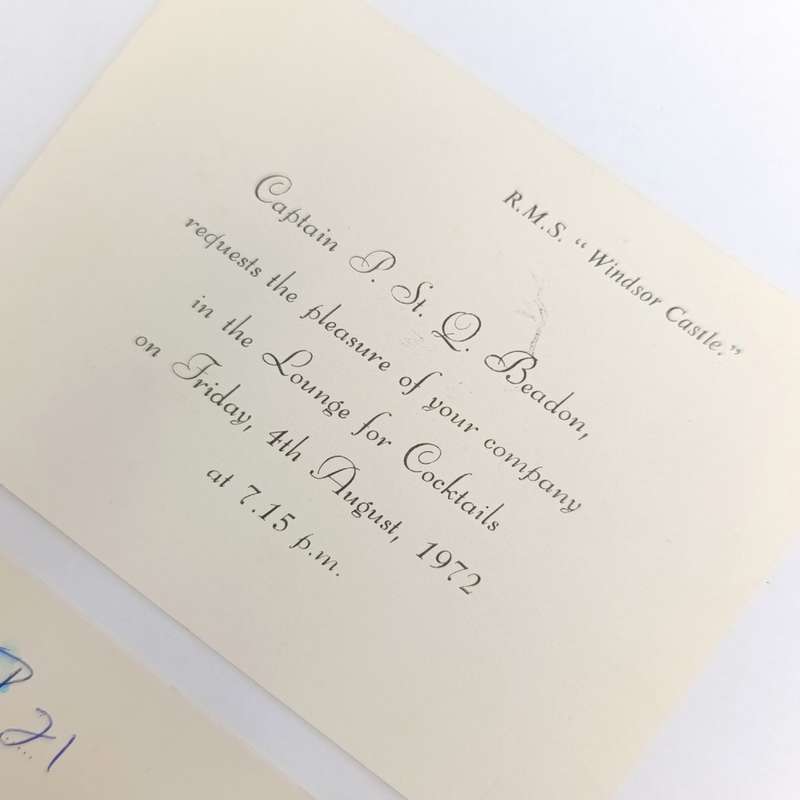 R.M.S. "Windsor Castle."
Captain P. St. Q. Beadon,
requests the pleasure of your company
in the Lounge for Cocktails
on Friday, 4th August, 1972
at 7.15 p.m.
21